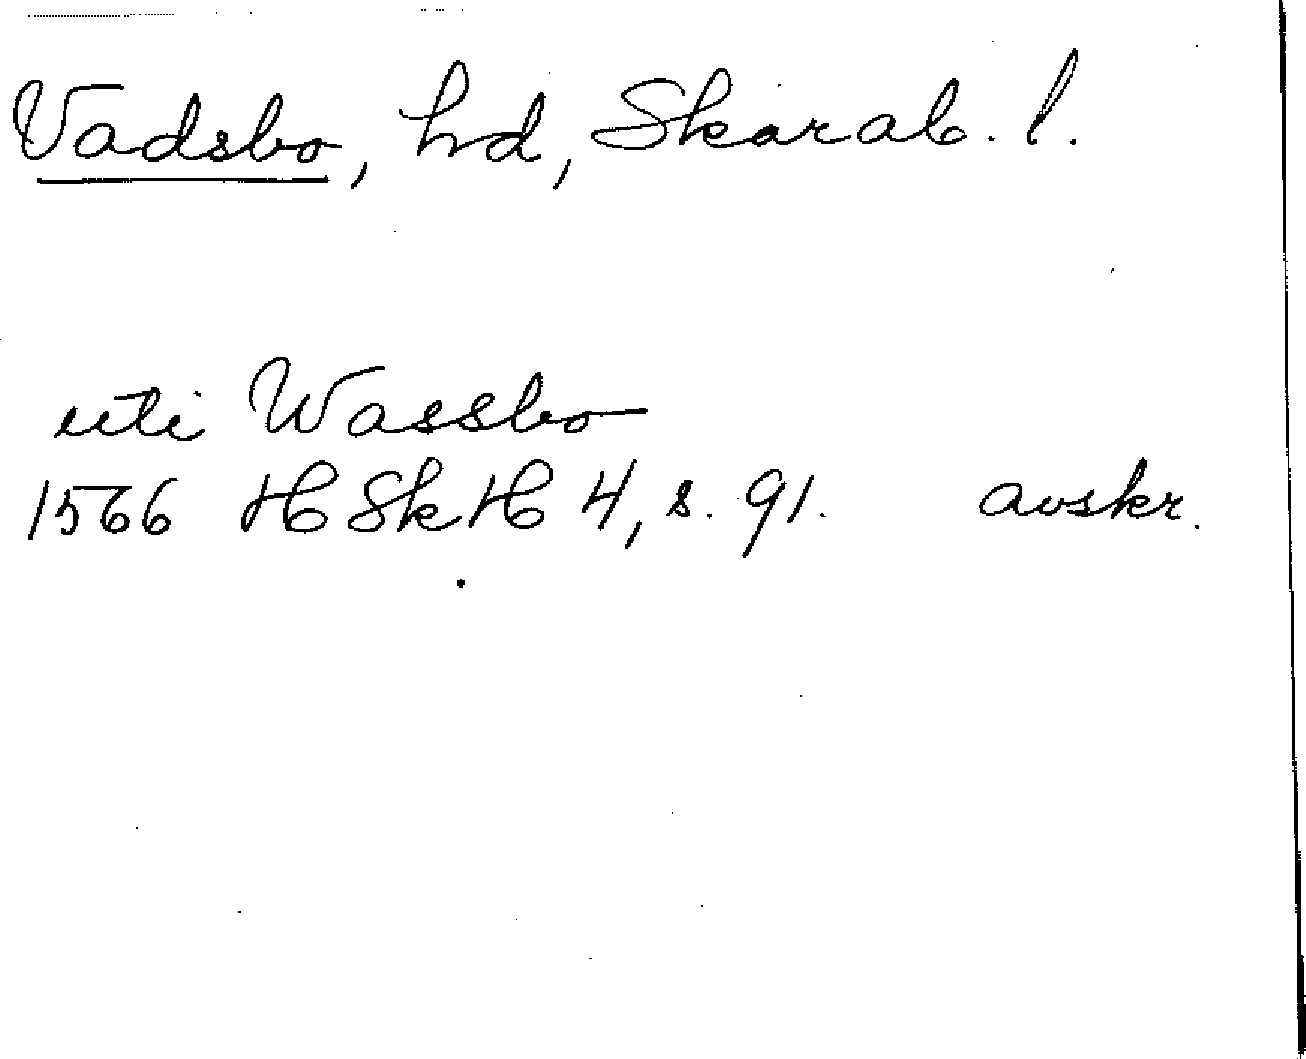 Vadsbo, hd, Skarab. l.
uti Wassbo
1566 HSkH 4, s. 91. avskr.